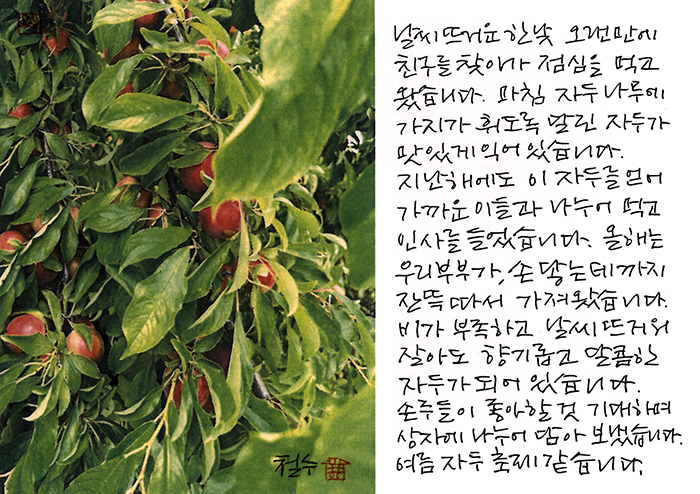 날씨 뜨거운 한낮 오랜만에
친구를 찾아가 점심을 먹고
왔습니다. 마침 자두나무에
가지가 휘도록 달린 자두가
맛있게 익어 있습니다.
지난해에도 이 자두를 얻어
가까운 이들과 나누어 먹고
인사를 들었습니다. 올해는
우리부부가, 손 닿는데까지
잔뜩 따서 가져왔습니다.
비가 부족하고 날씨 뜨거워
잘아도 향기롭고 달콤한
자두가 되어 있습니다.
손주들이 좋아할 것 기대하며
상자에 나누어 담아 보냈습니다.
여름 자두 축제 같습니다.
철수